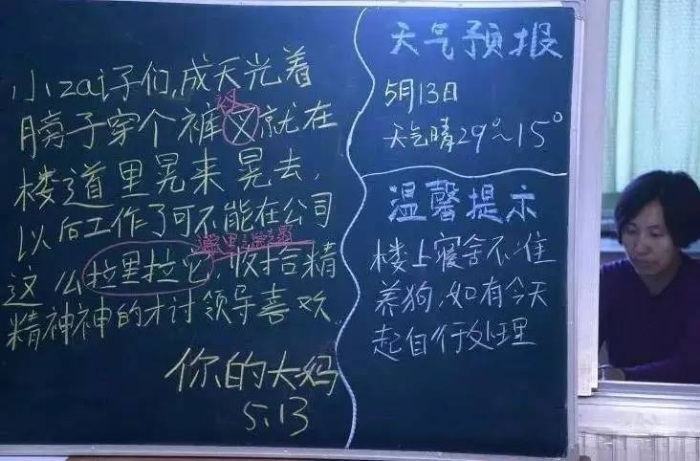 小zai子们,成天光着
衩
膀子穿个裤叉就在
楼道里晃来晃去,
以后工作了可不能在公司
邋里邋遢
这么拉里拉它 收拾精
精神神的才讨领导喜欢
你的大妈
5.13
天气预报
5月13日
天气晴29°~15°
温馨提示
楼上寝舍不准
养狗,如有今天
起自行处理